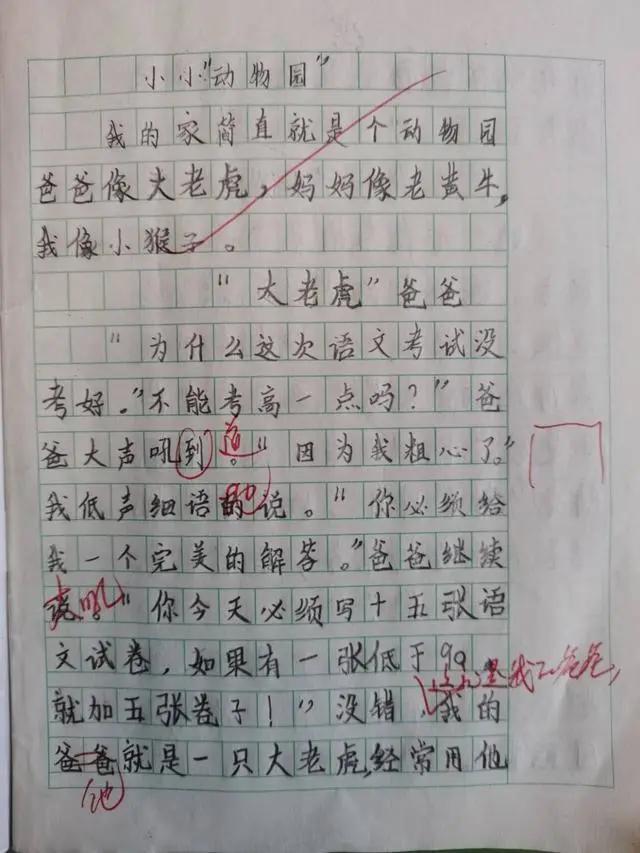 小小"动物园"
我的家简直就是个动物园
爸爸像大老虎，妈妈像老黄牛，
我像小猴子。
"大老虎"爸爸
"为什么这次语文考试没
考好。"不能考高一点吗？"爸
爸大声吼到道。"因为我粗心了。"
我低声细语的说。"你必须给
我一个完美的解答。"爸爸继续
"你今天必须写十五张语
文试卷，如果有一张低于99
就加五张卷子！"没错，我的
爸爸就是一只大老虎，经常用他
他